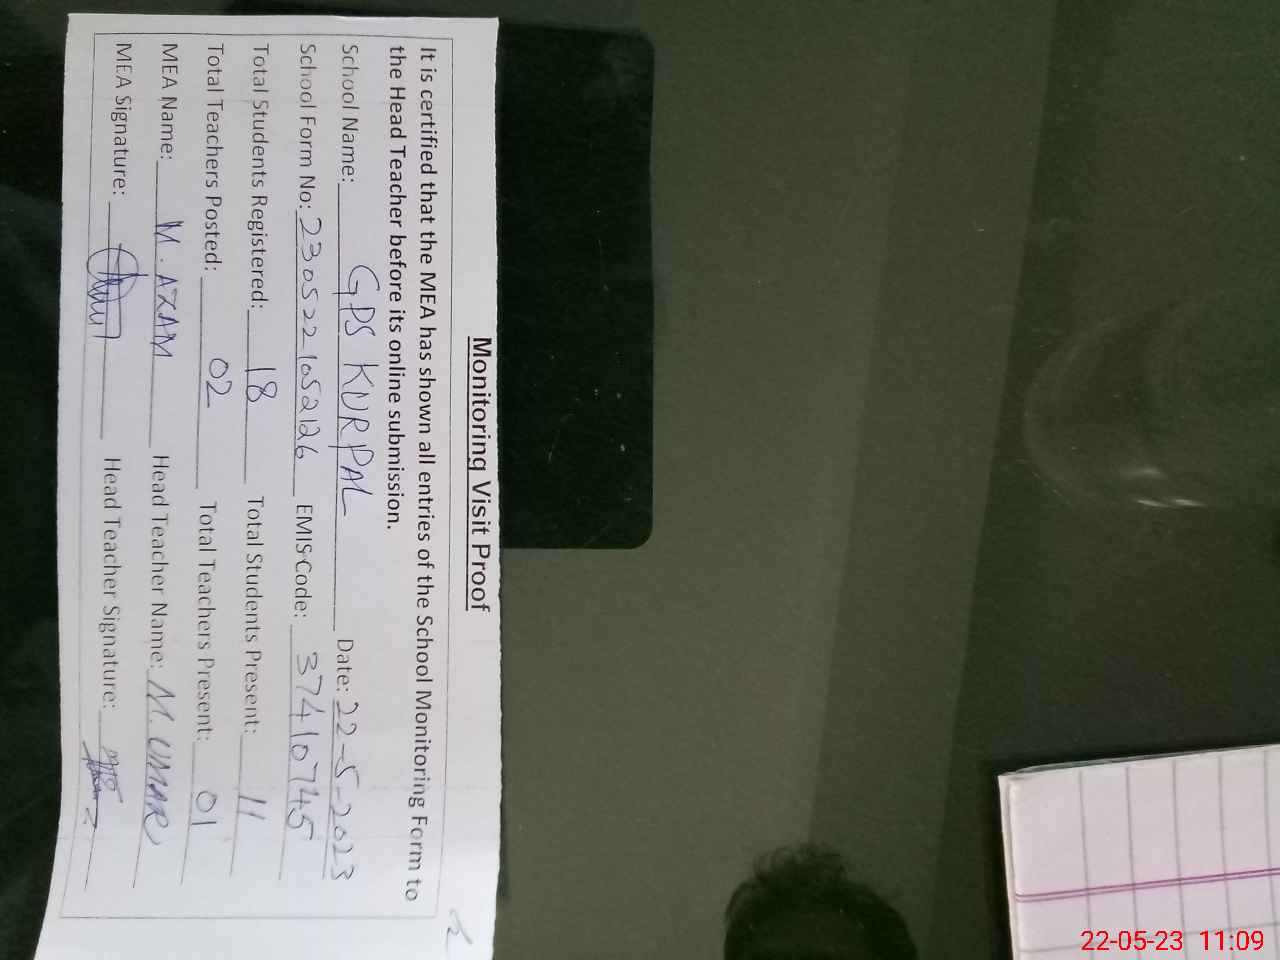 Monitoring Visit Proof
It is certified that the MEA has shown all entries of the School Monitoring Form to
the Head Teacher before its online submission.
School Name: GPS KURPAL Date: 22-5-2023
School Form No: 2305221052126 EMIS Code: 37410745
Total Students Registered: 18 Total Students Present: 11
Total Teachers Posted: 02 Total Teachers Present: 01
MEA Name: M. AZAM Head Teacher Name: M. UMAR
MEA Signature: Head Teacher Signature:
22-05-23 11:09